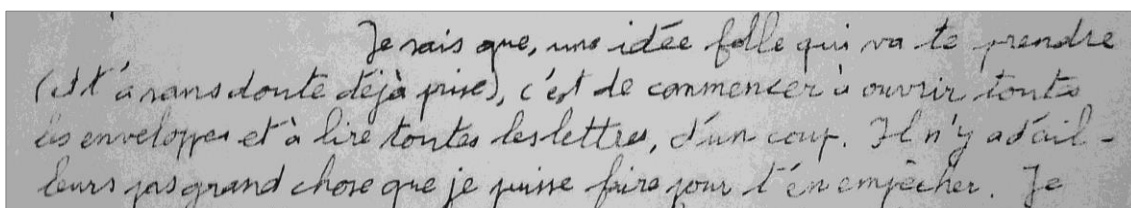 Je sais que, une idée folle qui va te prendre
(et t'a sans doute déjà prise), c'est de commencer à ouvrir toutes
les enveloppes et à lire toutes les lettres, d'un coup. Il n'y a d'ail-
leurs pas grand chose que je puisse faire pour t'en empêcher. Je